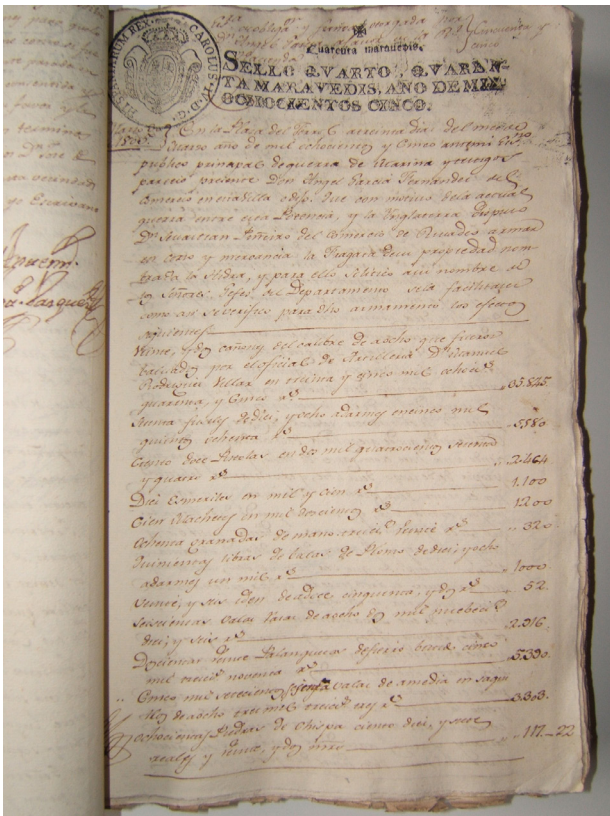 HISPANIARUM REX CAROLUS IV D.G.
Quarenta maravedis.
SELLO QVARTO, QVAREN-
TA MARAVEDIS, AÑO DE MIL
OCHOCIENTOS CINCO.
En la Plaza del Ferrol a treinta dias del mes de
año de mil ochocientos y Cinco ante mi
publico principal de guerra de Marina y testigos
parecio presente Don Angel Garcia Fernandez del
Comercio en esta Villa y dijo: Que con motivo de la actual
guerra entre esta Potencia, y la Inglaterra
Dn Sevastian Piñeiro del Comercio de Rivadeo armar
en Corso y mercancia la Fragata de su propiedad nom-
brada la Sidra, y para ello Solicito a su nombre de
los Señores Jefes del Departamento se la facilitasen
como asi se verifico para dho armamento los efectos
siguientes
Veinte, y dos cañones del calibre de a ocho que fueron
por el oficial de Artilleria Dn Manuel
Rodriguez Villar en treinta y cinco mil ochocs
quarenta, y Cinco rs 35.845
fusiles de diez, y ocho adarmes en cinco mil
quinientos ochenta rs 5580
Pistolas en dos mil quatrocientos sesenta
y quatro rs 2.464
Diez Esmeriles en mil y cien rs 1.100
Cien Machetes en mil doscientos rs 1200
Ochenta granadas de mano trecientos veinte rs 320
Quinientas libras de balas de Plomo de diez, y ocho
adarmes en mil rs 1000
Veinte, y seis idem de a doce cinquenta, y dos rs 52
Seiscientas balas rasas de a ocho dos mil novecientos
diez, y seis rs 2.916
Doscientas veinte Palanquetas de fierro cinco
mil trecientos noventa rs 5.390
Cinco mil setecientas sesenta balas de a media en saqui
llos de a ocho tres mil trecientos tres rs 3.303
Ochocientas Piedras de Chispa ciento diez, y siete
reales y veinte, y dos mrs 117-22